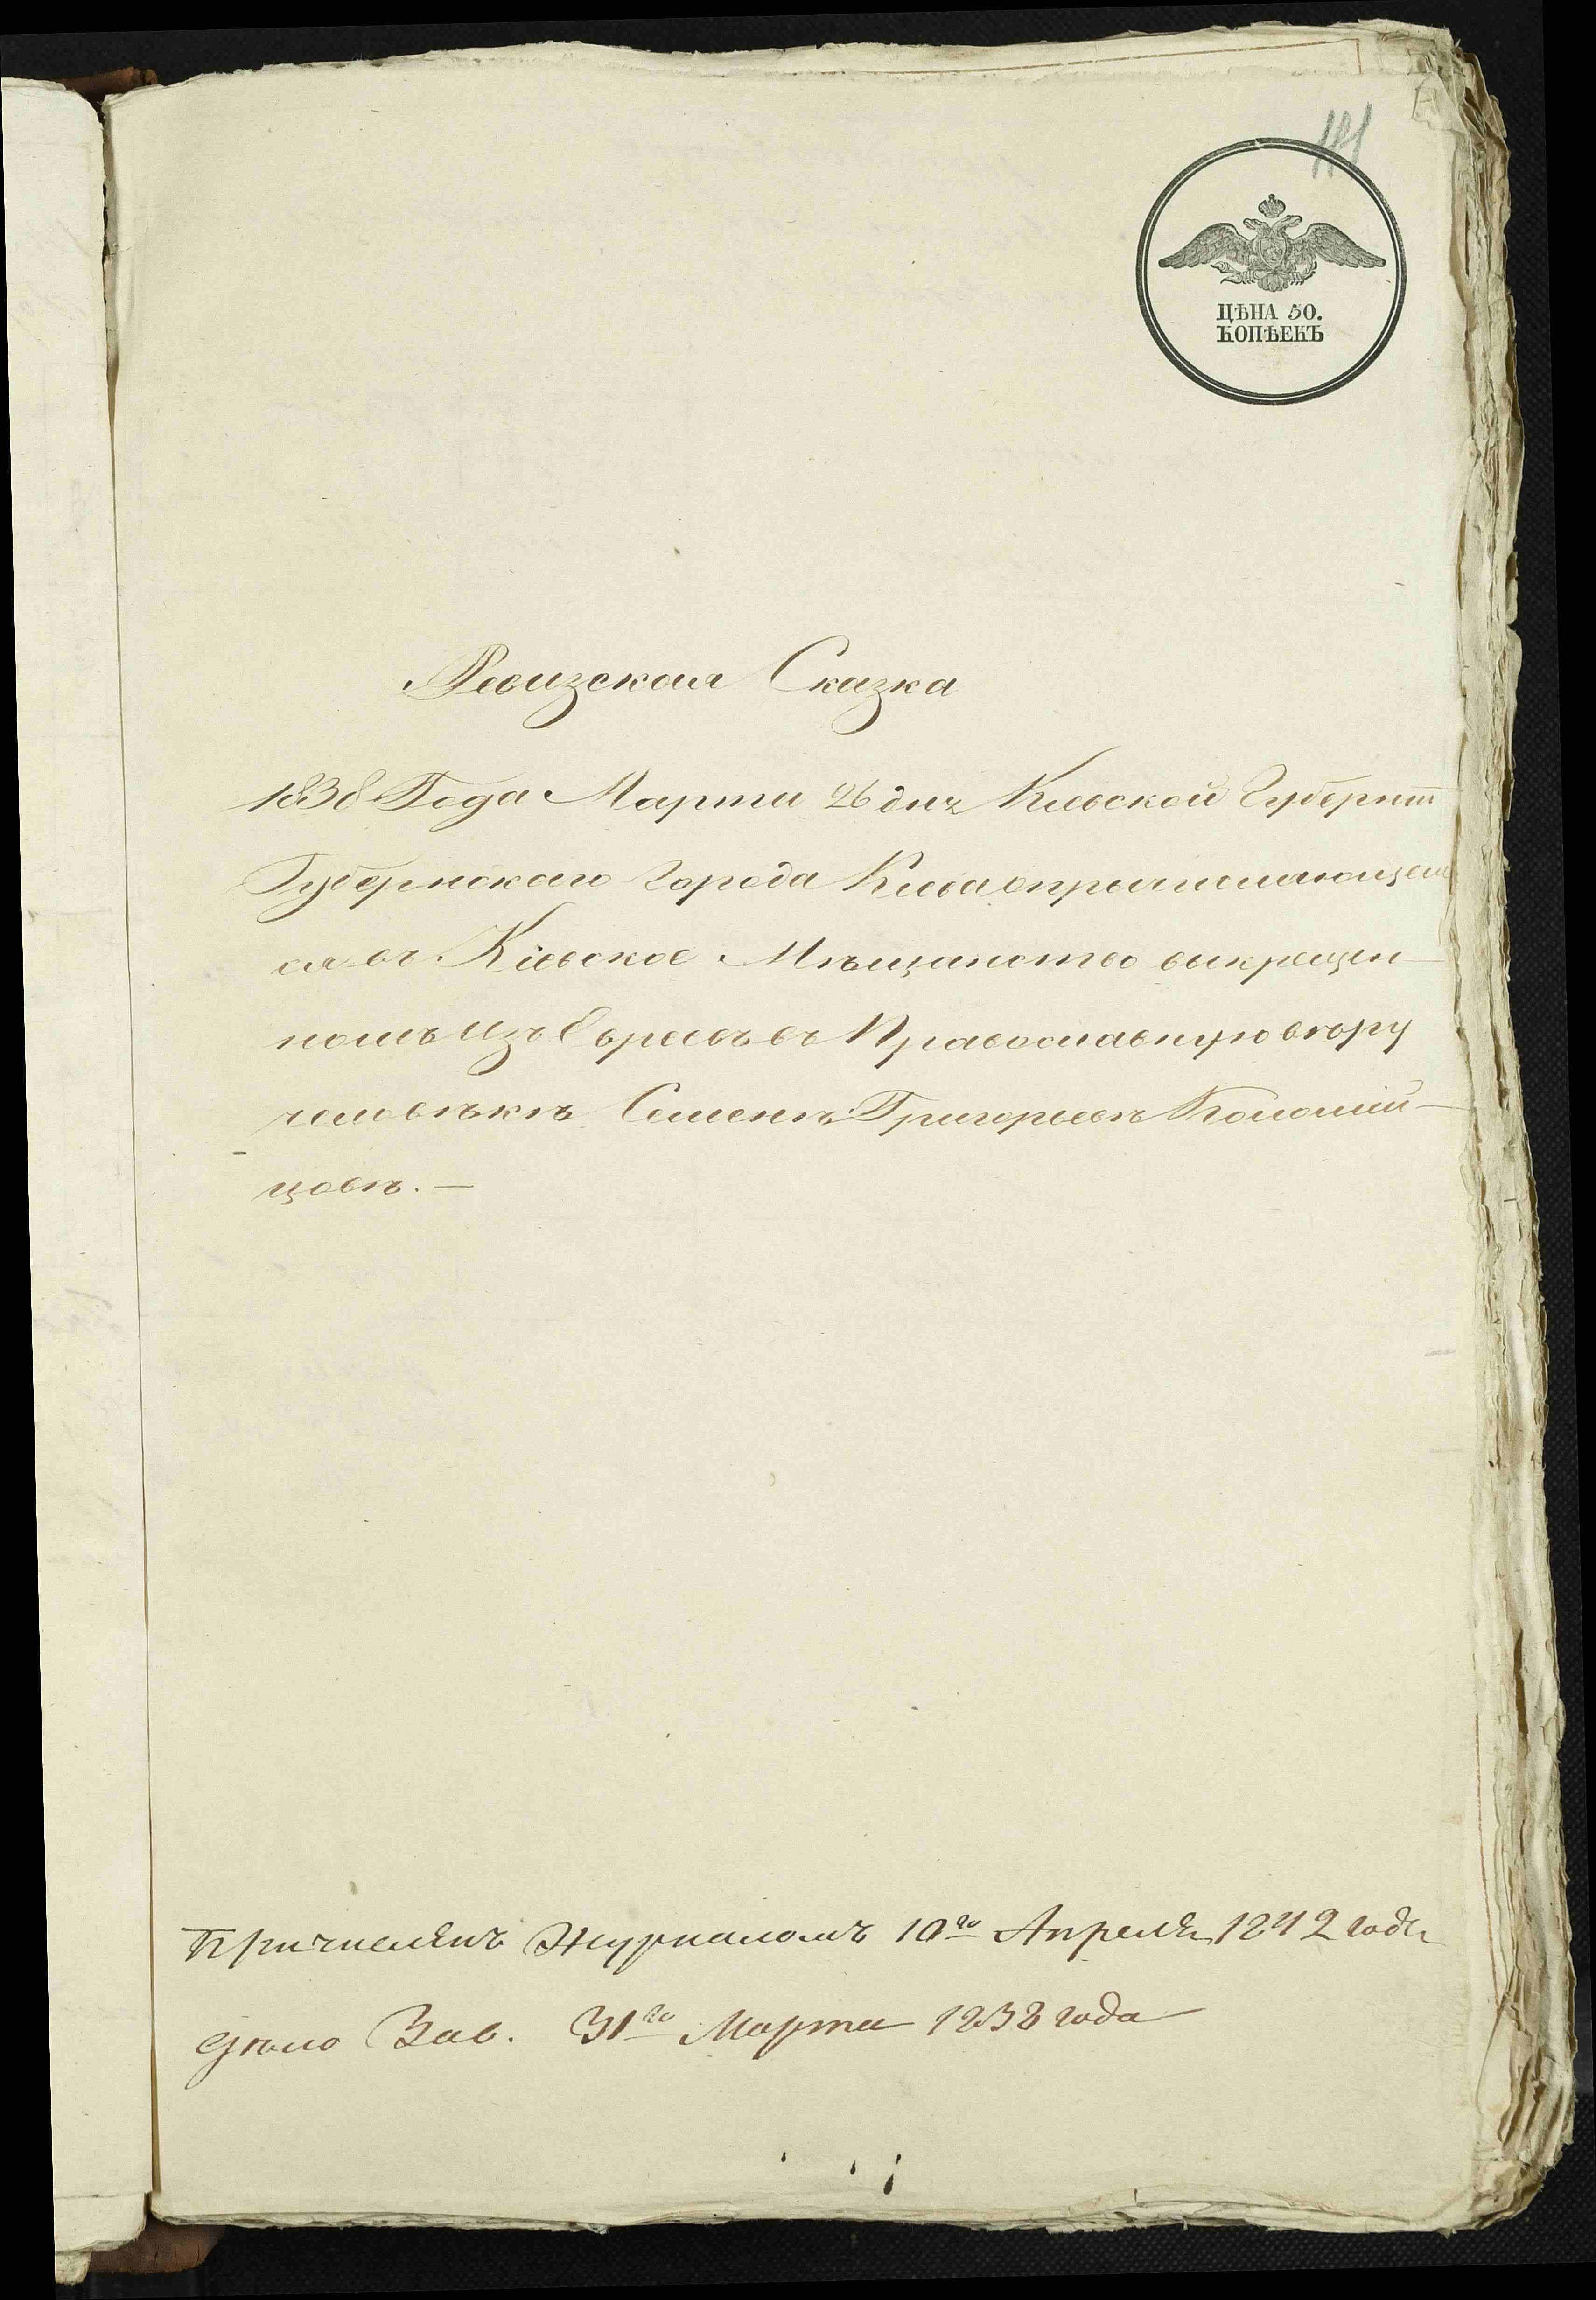 ЦѢНА 50.
КОПѢЕКЪ
Ревизская Сказка
1838 Года Марта 26 дня Киевской Губерніи
Губернскаго Города Киева о причисляющем
ся въ Кіевское Мѣщанство выкрещен-
номъ изъ Евреевъ въ Православную вѣру
человѣкѣ Семенѣ Григорьевѣ Коломій-
цовѣ. —
Причисленъ Журналомъ 10го Апреля 1842 года
дѣло Зав. 31го Марта 1838 года